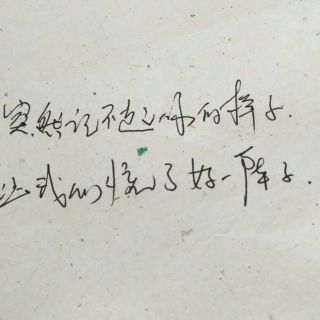 突然记不起你的样子.
让我心慌了好一阵子.